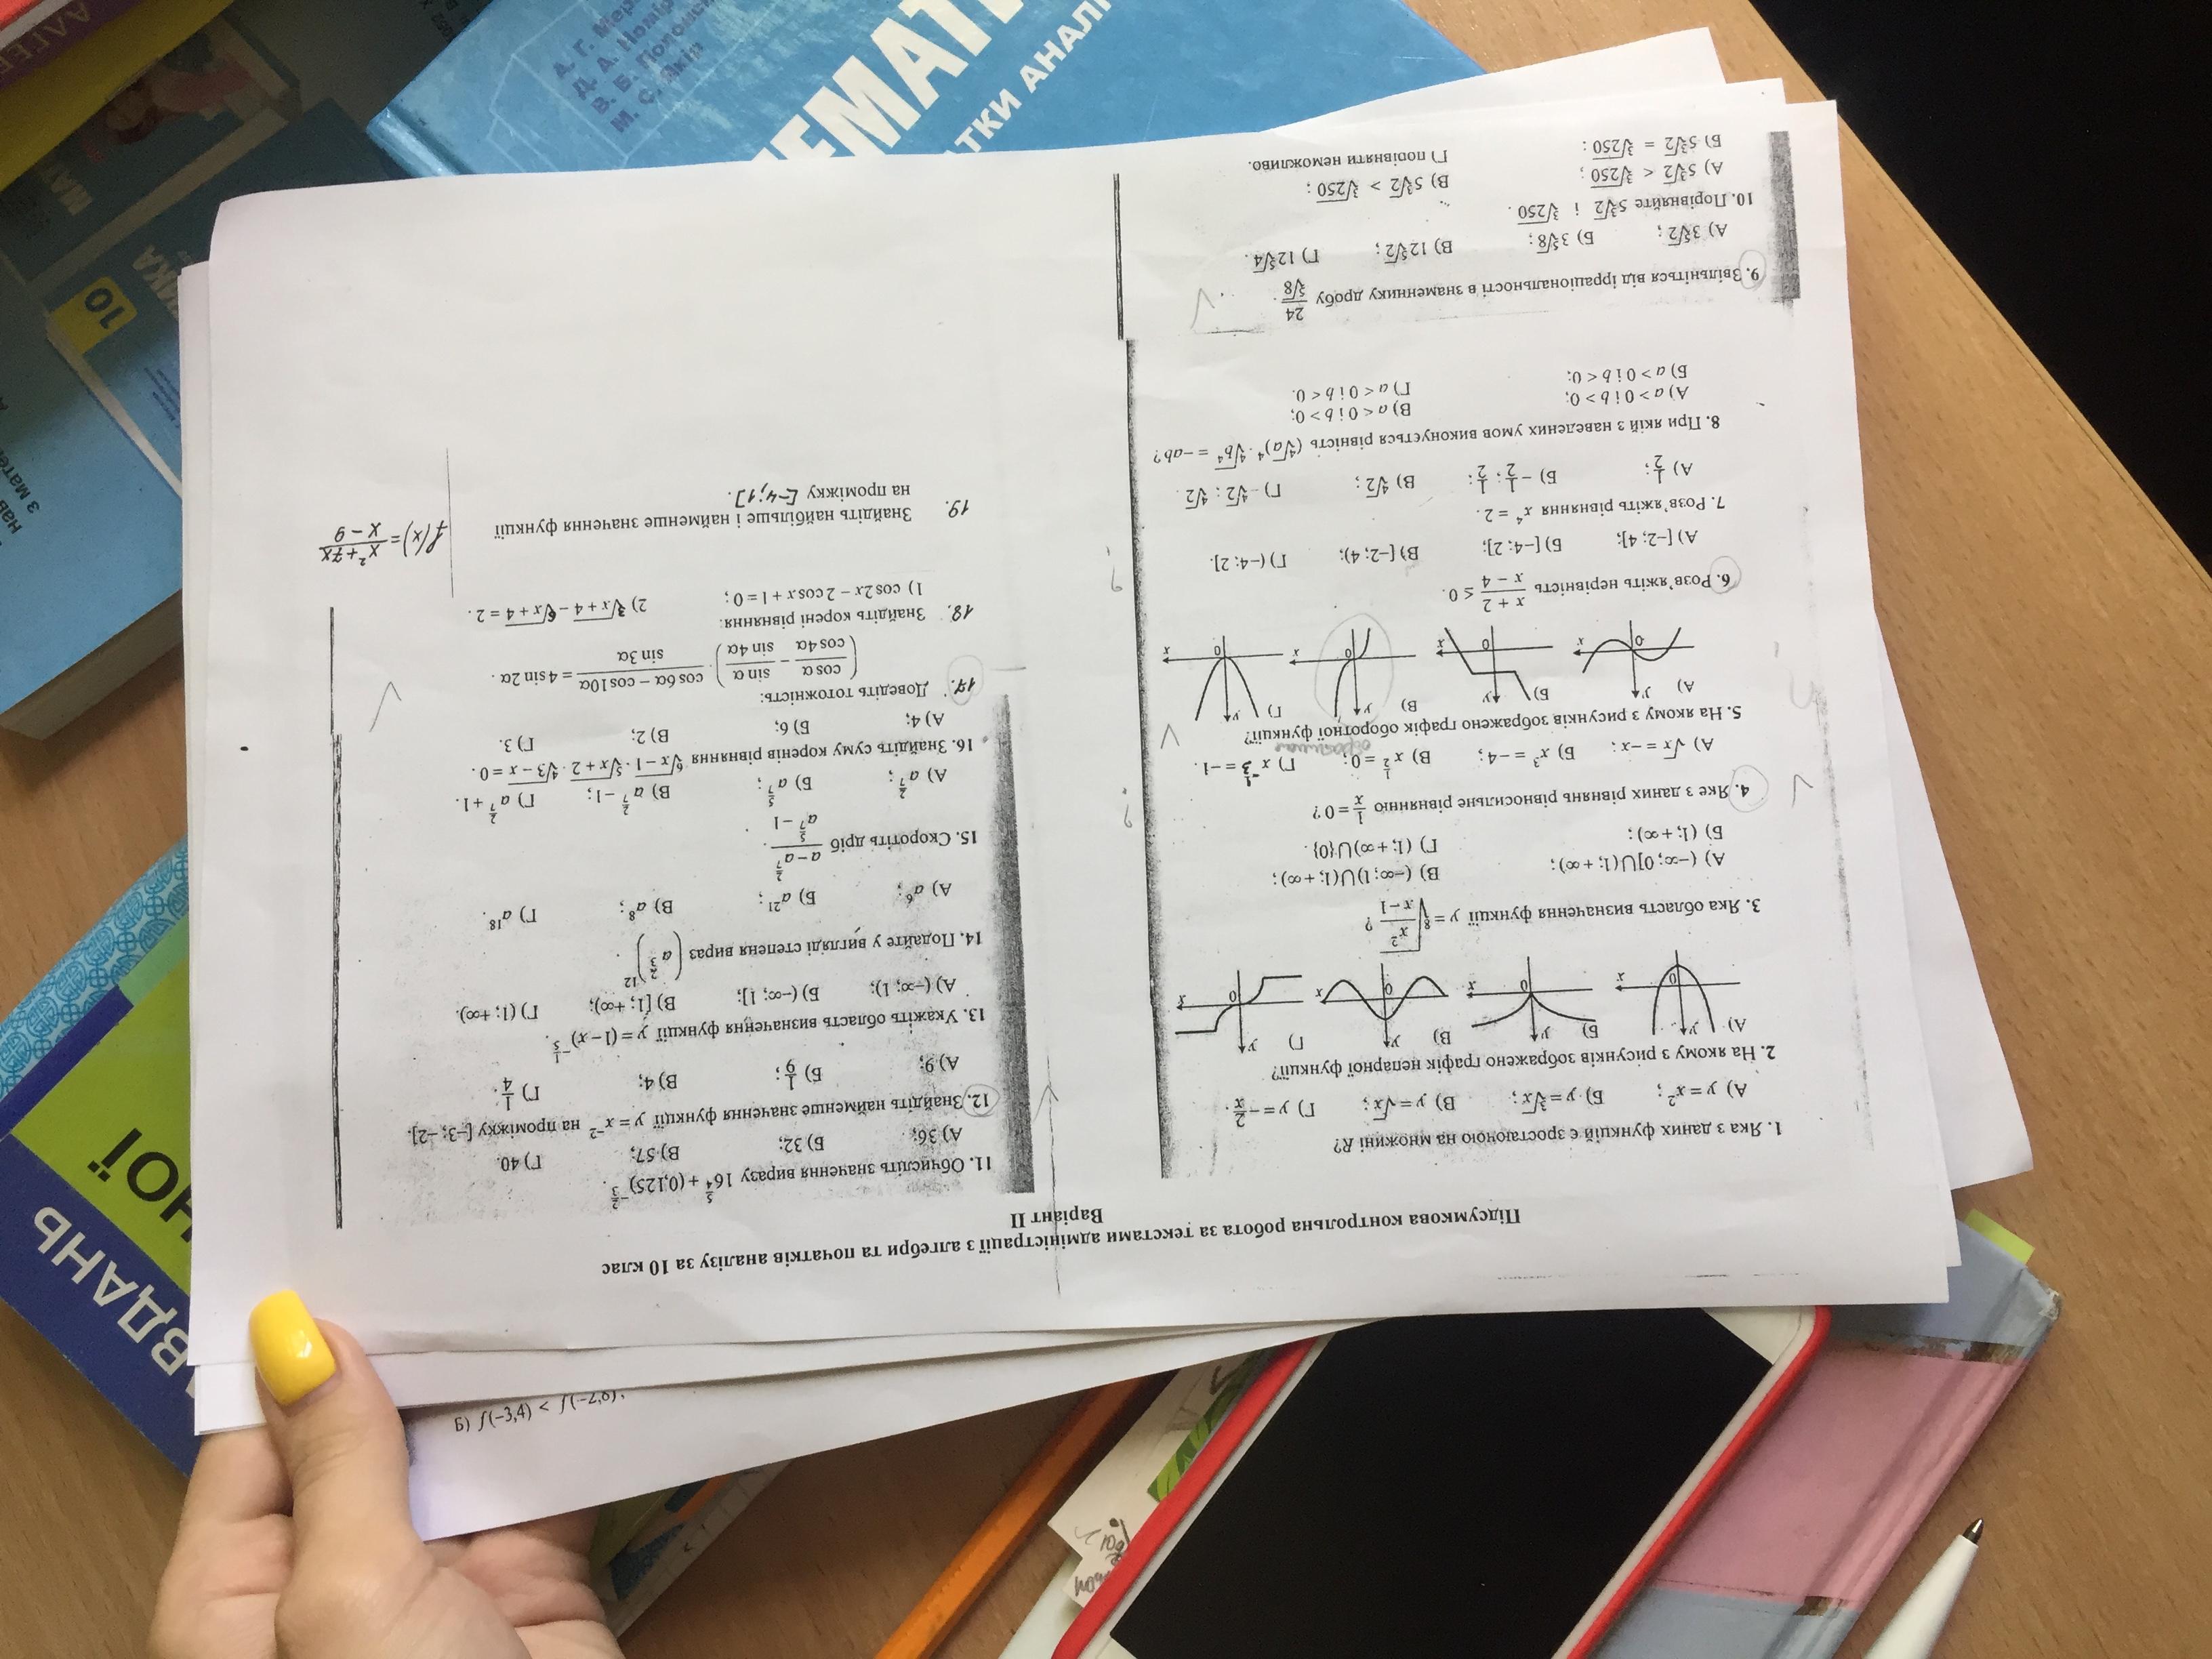 Підсумкова контрольна робота за текстами адміністрації з алгебри та початків аналізу за 10 клас
Варіант II
1. Яка з даних функцій є зростаючою на множині R?
А) y = x²; Б) y = ∛x; В) y = √x; Г) y = −2/x.
2. На якому з рисунків зображено графік непарної функції?
А) Б) В) Г)
y x 0 y x 0 y x 0 y x 0
3. Яка область визначення функції y = ⁸√(x²/(x−1)) ?
А) (−∞; 0]∪(1; +∞); В) (−∞; 1)∪(1; +∞);
Б) (1; +∞); Г) (1; +∞)∪{0}.
4. Яке з даних рівнянь рівносильне рівнянню 1/x = 0?
А) √x = −x; Б) x³ = −4; В) x^(1/2) = 0; Г) x^(−1/3) = −1.
5. На якому з рисунків зображено графік оборотної функції?
А) Б) В) Г)
y x 0 y x 0 y x 0 y x 0
6. Розв'яжіть нерівність (x + 2)/(x − 4) ≤ 0.
А) [−2; 4]; Б) [−4; 2]; В) [−2; 4); Г) (−4; 2].
7. Розв'яжіть рівняння x⁴ = 2.
А) 1/2; Б) −1/2; 1/2; В) ⁴√2; Г) −⁴√2; ⁴√2
8. При якій з наведених умов виконується рівність (⁴√a)⁴ · ⁴√b⁴ = −ab?
А) a > 0 і b > 0; В) a < 0 і b > 0;
Б) a > 0 і b < 0; Г) a < 0 і b < 0.
9. Звільніться від ірраціональності в знаменнику дробу 24/⁵√8.
А) 3⁵√2; Б) 3⁵√8; В) 12⁵√2; Г) 12⁵√4.
10. Порівняйте 5∛2 і ∛250.
А) 5∛2 < ∛250; В) 5∛2 > ∛250;
Б) 5∛2 = ∛250; Г) порівняти неможливо.
11. Обчисліть значення виразу 16^(5/4) + (0,125)^(−2/3).
А) 36; Б) 32; В) 57; Г) 40.
12. Знайдіть найменше значення функції y = x⁻² на проміжку [−3; −2].
А) 9; Б) 1/9; В) 4; Г) 1/4.
13. Укажіть область визначення функції y = (1−x)^(−1/5).
А) (−∞; 1); Б) (−∞; 1]; В) [1; +∞); Г) (1; +∞).
14. Подайте у вигляді степеня вираз (a^(2/3))¹².
А) a⁶; Б) a²¹; В) a⁸; Г) a¹⁸.
15. Скоротіть дріб (a − a^(2/7))/(a^(5/7) − 1).
А) a^(2/7); Б) a^(5/7); В) a^(2/7) − 1; Г) a^(2/7) + 1.
16. Знайдіть суму коренів рівняння ⁶√(x−1) · ⁵√(x+2) · ⁴√(3−x) = 0.
А) 4; Б) 6; В) 2; Г) 3.
17. Доведіть тотожність:
(cos α/sin α − cos 4α/sin 4α) · (cos 6α − cos 10α)/sin 3α = 4 sin 2α.
18. Знайдіть корені рівняння:
1) cos 2x − 2 cos x + 1 = 0; 2) ∛(x+4) − ⁶√(x+4) = 2.
19. Знайдіть найбільше і найменше значення функції f(x) = (x² + 7x)/(x − 9)
на проміжку [−4; 1].
Б) f(−3,4) < f(−2,8);
ЕМАТ
ТКИ АНАЛІ
В. Б. Полонс
М. С. Якір
10
ИКА
МАТ
з мате
НОЇ
ВДАНЬ